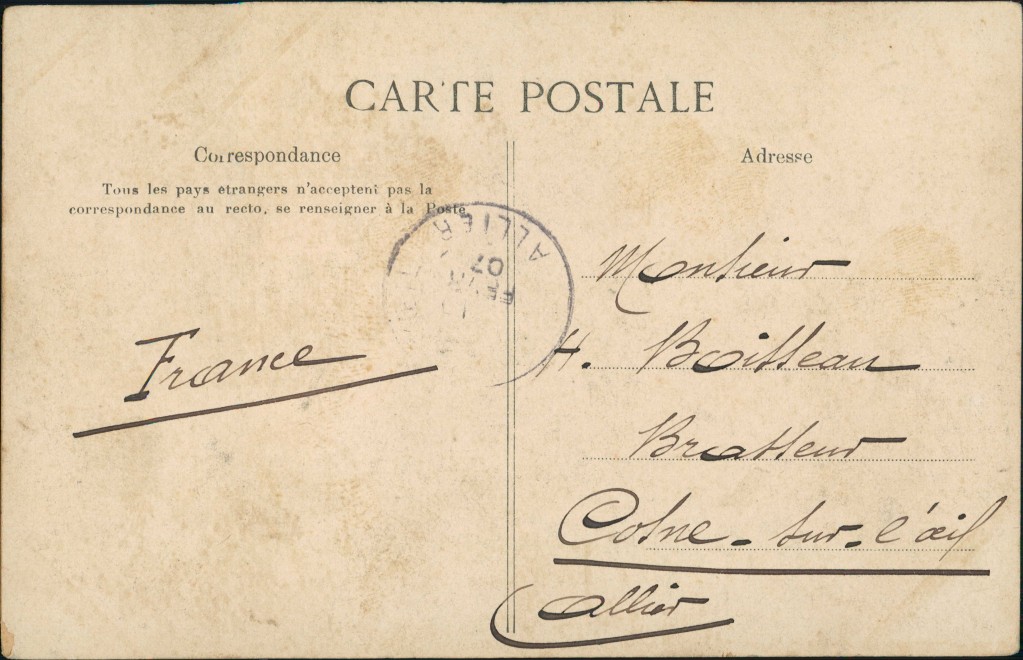 CARTE POSTALE
Correspondance
Tous les pays étrangers n'acceptent pas la
correspondance au recto, se renseigner à la Poste
Adresse
ALLIER
FEVR
07
France
Monsieur
H. Boisseau
Brasseur
Cosne-sur-l'œil
Allier